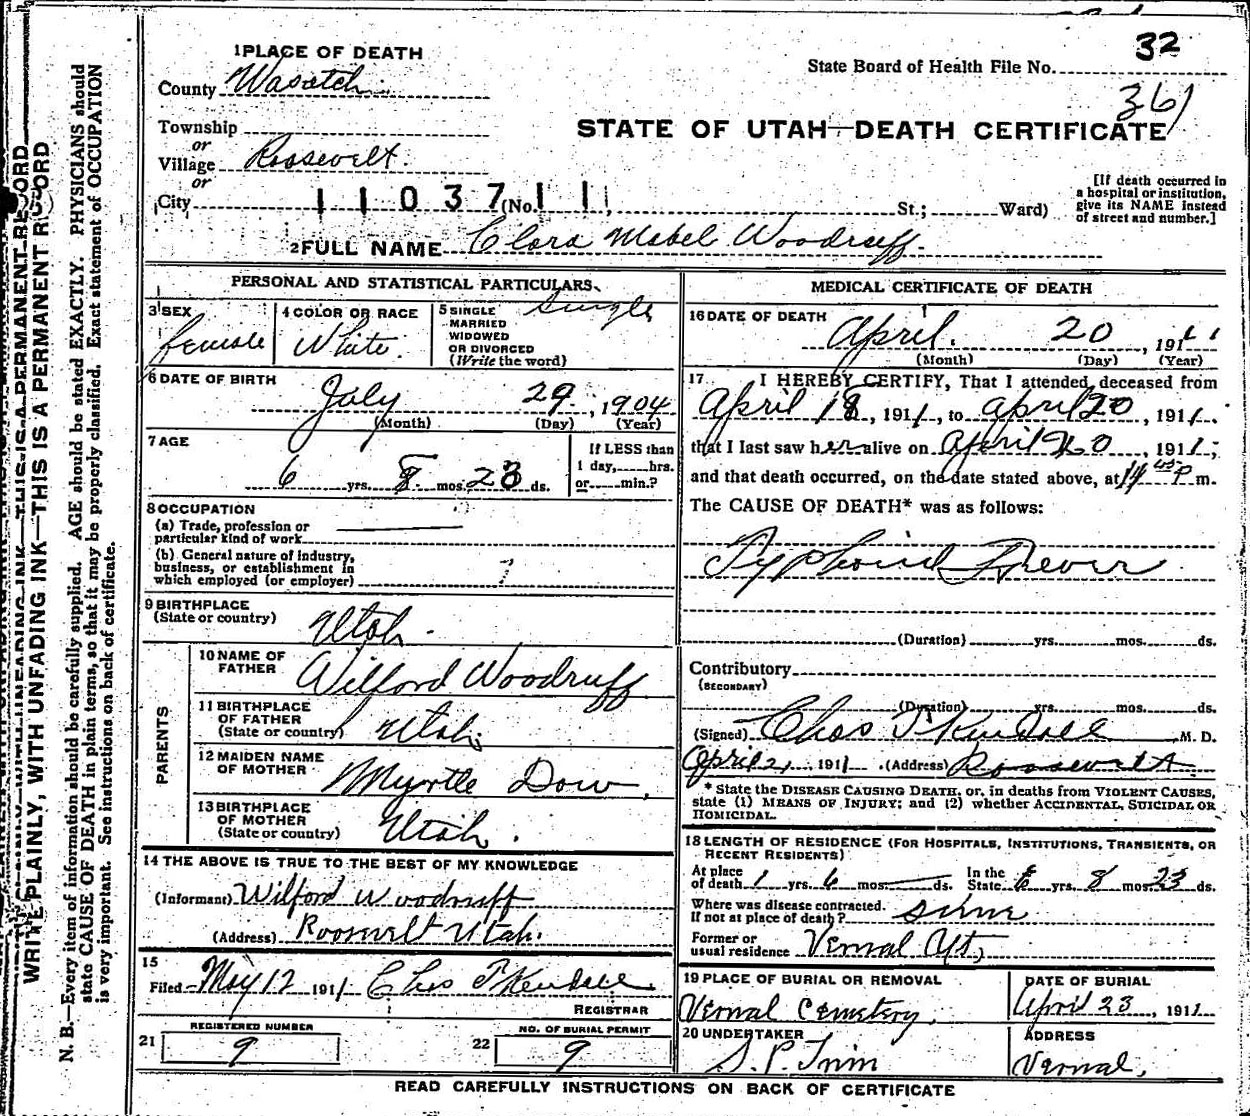 32
State Board of Health File No.
361
1 PLACE OF DEATH
County Wasatch
STATE OF UTAH—DEATH CERTIFICATE
Township
or
Village Roosevelt.
or
City 11037 (No. 11, St.; Ward)
[If death occurred in
a hospital or institution,
give its NAME instead
of street and number.]
2 FULL NAME Clora Mabel Woodruff.
WRITE PLAINLY, WITH UNFADING INK—THIS IS A PERMANENT RECORD
N. B.—Every item of information should be carefully supplied. AGE should be stated EXACTLY. PHYSICIANS should
state CAUSE OF DEATH in plain terms, so that it may be properly classified. Exact statement of OCCUPATION
is very important. See instructions on back of certificate.
PERSONAL AND STATISTICAL PARTICULARS
3 SEX
female
4 COLOR OR RACE
White.
5 SINGLE
MARRIED
WIDOWED
OR DIVORCED
(Write the word)
Single
6 DATE OF BIRTH
July 29, 1904
(Month) (Day) (Year)
7 AGE
6 yrs. 8 mos. 23 ds.
If LESS than
1 day, hrs.
or min.?
8 OCCUPATION
(a) Trade, profession or
particular kind of work
(b) General nature of industry,
business, or establishment in
which employed (or employer)
9 BIRTHPLACE
(State or country)
Utah.
PARENTS
10 NAME OF
FATHER
Wilford Woodruff
11 BIRTHPLACE
OF FATHER
(State or country)
Utah
12 MAIDEN NAME
OF MOTHER
Myrtle Dow,
13 BIRTHPLACE
OF MOTHER
(State or country)
Utah.
14 THE ABOVE IS TRUE TO THE BEST OF MY KNOWLEDGE
(Informant) Wilford Woodruff
(Address) Roosevelt Utah.
15
Filed May 12 1911 Chas T Kendall
REGISTRAR
21
REGISTERED NUMBER
9
22
NO. OF BURIAL PERMIT
9
MEDICAL CERTIFICATE OF DEATH
16 DATE OF DEATH
April. 20, 1911
(Month) (Day) (Year)
17 I HEREBY CERTIFY, That I attended deceased from
April 18, 1911, to April 20, 1911.
that I last saw her alive on April 20, 1911;
and that death occurred, on the date stated above, at P m.
The CAUSE OF DEATH* was as follows:
Typhoid Fever
(Duration) yrs. mos. ds.
Contributory
(SECONDARY)
(Duration) yrs. mos. ds.
(Signed) Chas T Kendall M. D.
April 21, 1911. (Address) Roosevelt.
* State the DISEASE CAUSING DEATH, or, in deaths from VIOLENT CAUSES,
state (1) MEANS OF INJURY; and (2) whether ACCIDENTAL, SUICIDAL OR
HOMICIDAL.
18 LENGTH OF RESIDENCE (FOR HOSPITALS, INSTITUTIONS, TRANSIENTS, OR
RECENT RESIDENTS)
At place
of death 1 yrs. 6 mos. ds. In the
State 6 yrs. 8 mos. 23 ds.
Where was disease contracted.
If not at place of death?
Former or
usual residence Vernal
19 PLACE OF BURIAL OR REMOVAL
Vernal Cemetery.
DATE OF BURIAL
April 23, 1911
20 UNDERTAKER
S. P.
ADDRESS
Vernal.
READ CAREFULLY INSTRUCTIONS ON BACK OF CERTIFICATE